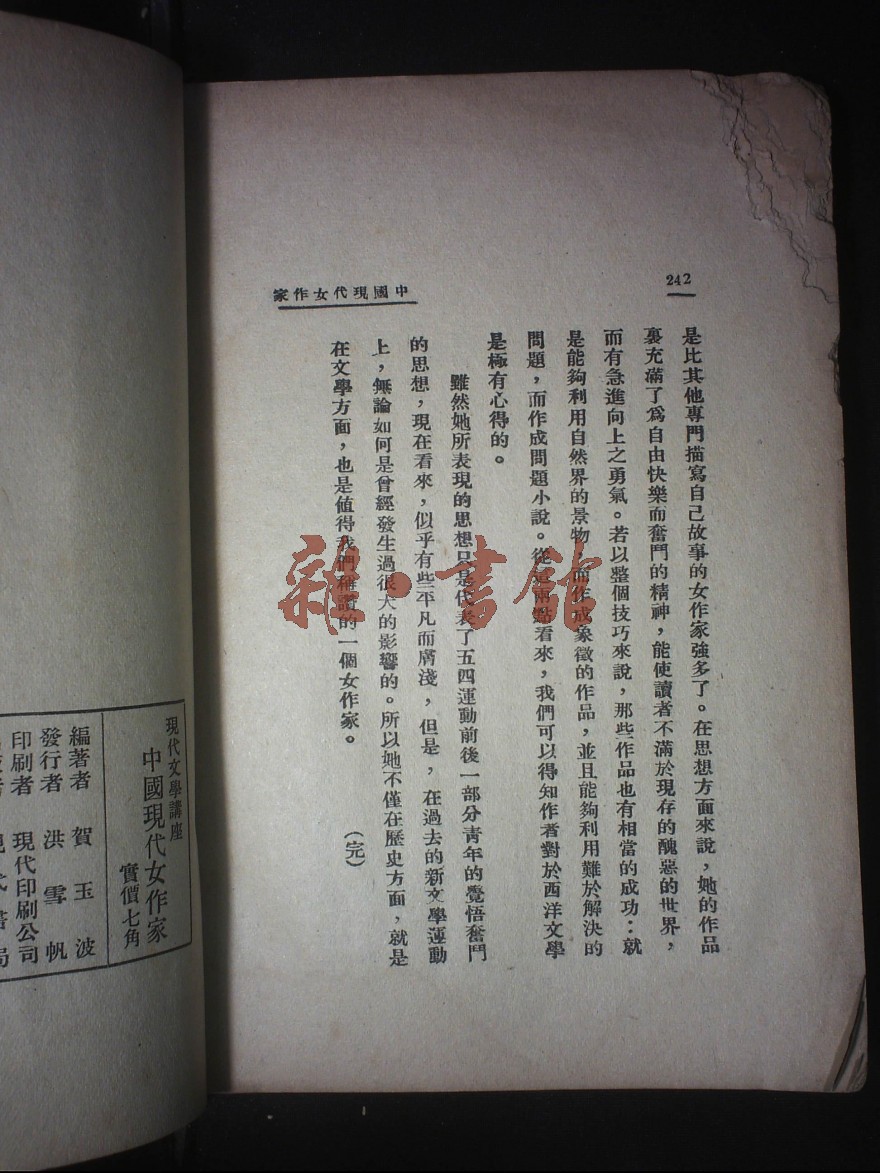 242
中國現代女作家
是比其他專門描寫自己故事的女作家強多了。在思想方面來說，她的作品
裏充滿了爲自由快樂而奮鬥的精神，能使讀者不滿於現存的醜惡的世界，
而有急進向上之勇氣。若以整個技巧來說，那些作品也有相當的成功：就
是能夠利用自然界的景物，而作成象徵的作品，並且能夠利用難於解決的
問題，而作成問題小說。從這兩點看來，我們可以得知作者對於西洋文學
是極有心得的。
雖然她所表現的思想只是代表了五四運動前後一部分青年的覺悟奮鬥
的思想，現在看來，似乎有些平凡而膚淺，但是，在過去的新文學運動
上，無論如何是曾經發生過很大的影響的。所以她不僅在歷史方面，就是
在文學方面，也是値得我們稱讚的一個女作家。
（完）
現代文學講座
中國現代女作家
實價七角
編著者 賀玉波
發行者 洪雪帆
印刷者 現代印刷公司
雜·書館